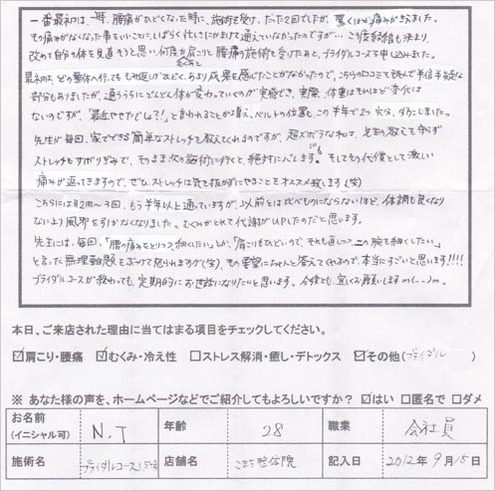 一番最初は、一年、腰痛がひどくなった時に、施術を受け、たった2回でしたが、驚くほど痛みが去りました。
その痛みがなくなった事をいいことに、しばらく忙しさにかまけて通えていなかったのですが…この度結婚も決まり、
改めて自分の体を見直そうと思い、何度か肩こりと腰痛の施術を受けたあと、ブライダルコースを申し込みました。
最初は、どの整体へ行っても、もみ返しがひどく、あまり成果を感じたことがなかったので、こちらの口コミを読んで半信半疑な
部分もありましたが、通ううちにどんどん体が変わっていくのが実感でき、実際、体重はそれほど変化は
ないのですが、「最近やせたでしょ?!」と言われることが増え、ベルトの位置も、この半年で2つ穴分、ダウンしました。
先生が毎回、家でできる簡単なストレッチを教えてくれるのですが、超ズボラな私は、先生の教えを守らず
ストレッチもサボりぎみで、そのまま次の施術に行くと、絶対にバレます。そしてその代償として激しい
痛みが返ってきますので、ぜひ、ストレッチは気を抜かずにやることをオススメ致します(笑)
こちらには月2回〜3回、もう半年以上通っていますが、以前とは比べものにならないほど、体調も良くなり
なにより風邪を引かなくなりました。むくみがとれて代謝がUPしたのだと思います。
先生には、毎回、「腰の痛みをとりつつ細くしたい」とか、「肩こりもひどいので、それも直しつつ二の腕を細くしたい」
と言った無理難題をぶつけて怒られますが(笑)、その要望にちゃんと答えてくれるので、本当にすごいと思います!!!!
ブライダルコースが終わっても、定期的にお世話になりたいと思います。今後とも、宜しくお願いしますm(--)m
本日、ご来店された理由に当てはまる項目をチェックしてください。
☑肩こり・腰痛 ☑むくみ・冷え性 □ストレス解消・癒し・デトックス ☑その他(ブライダル)
※ あなた様の声を、ホームページなどでご紹介してもよろしいですか? ☑はい □匿名で □ダメ
お名前(イニシャル可) N.T 年齢 28 職業 会社員
施術名 ブライダルコース 店舗名 こまち整体院 記入日 2012年9月15日